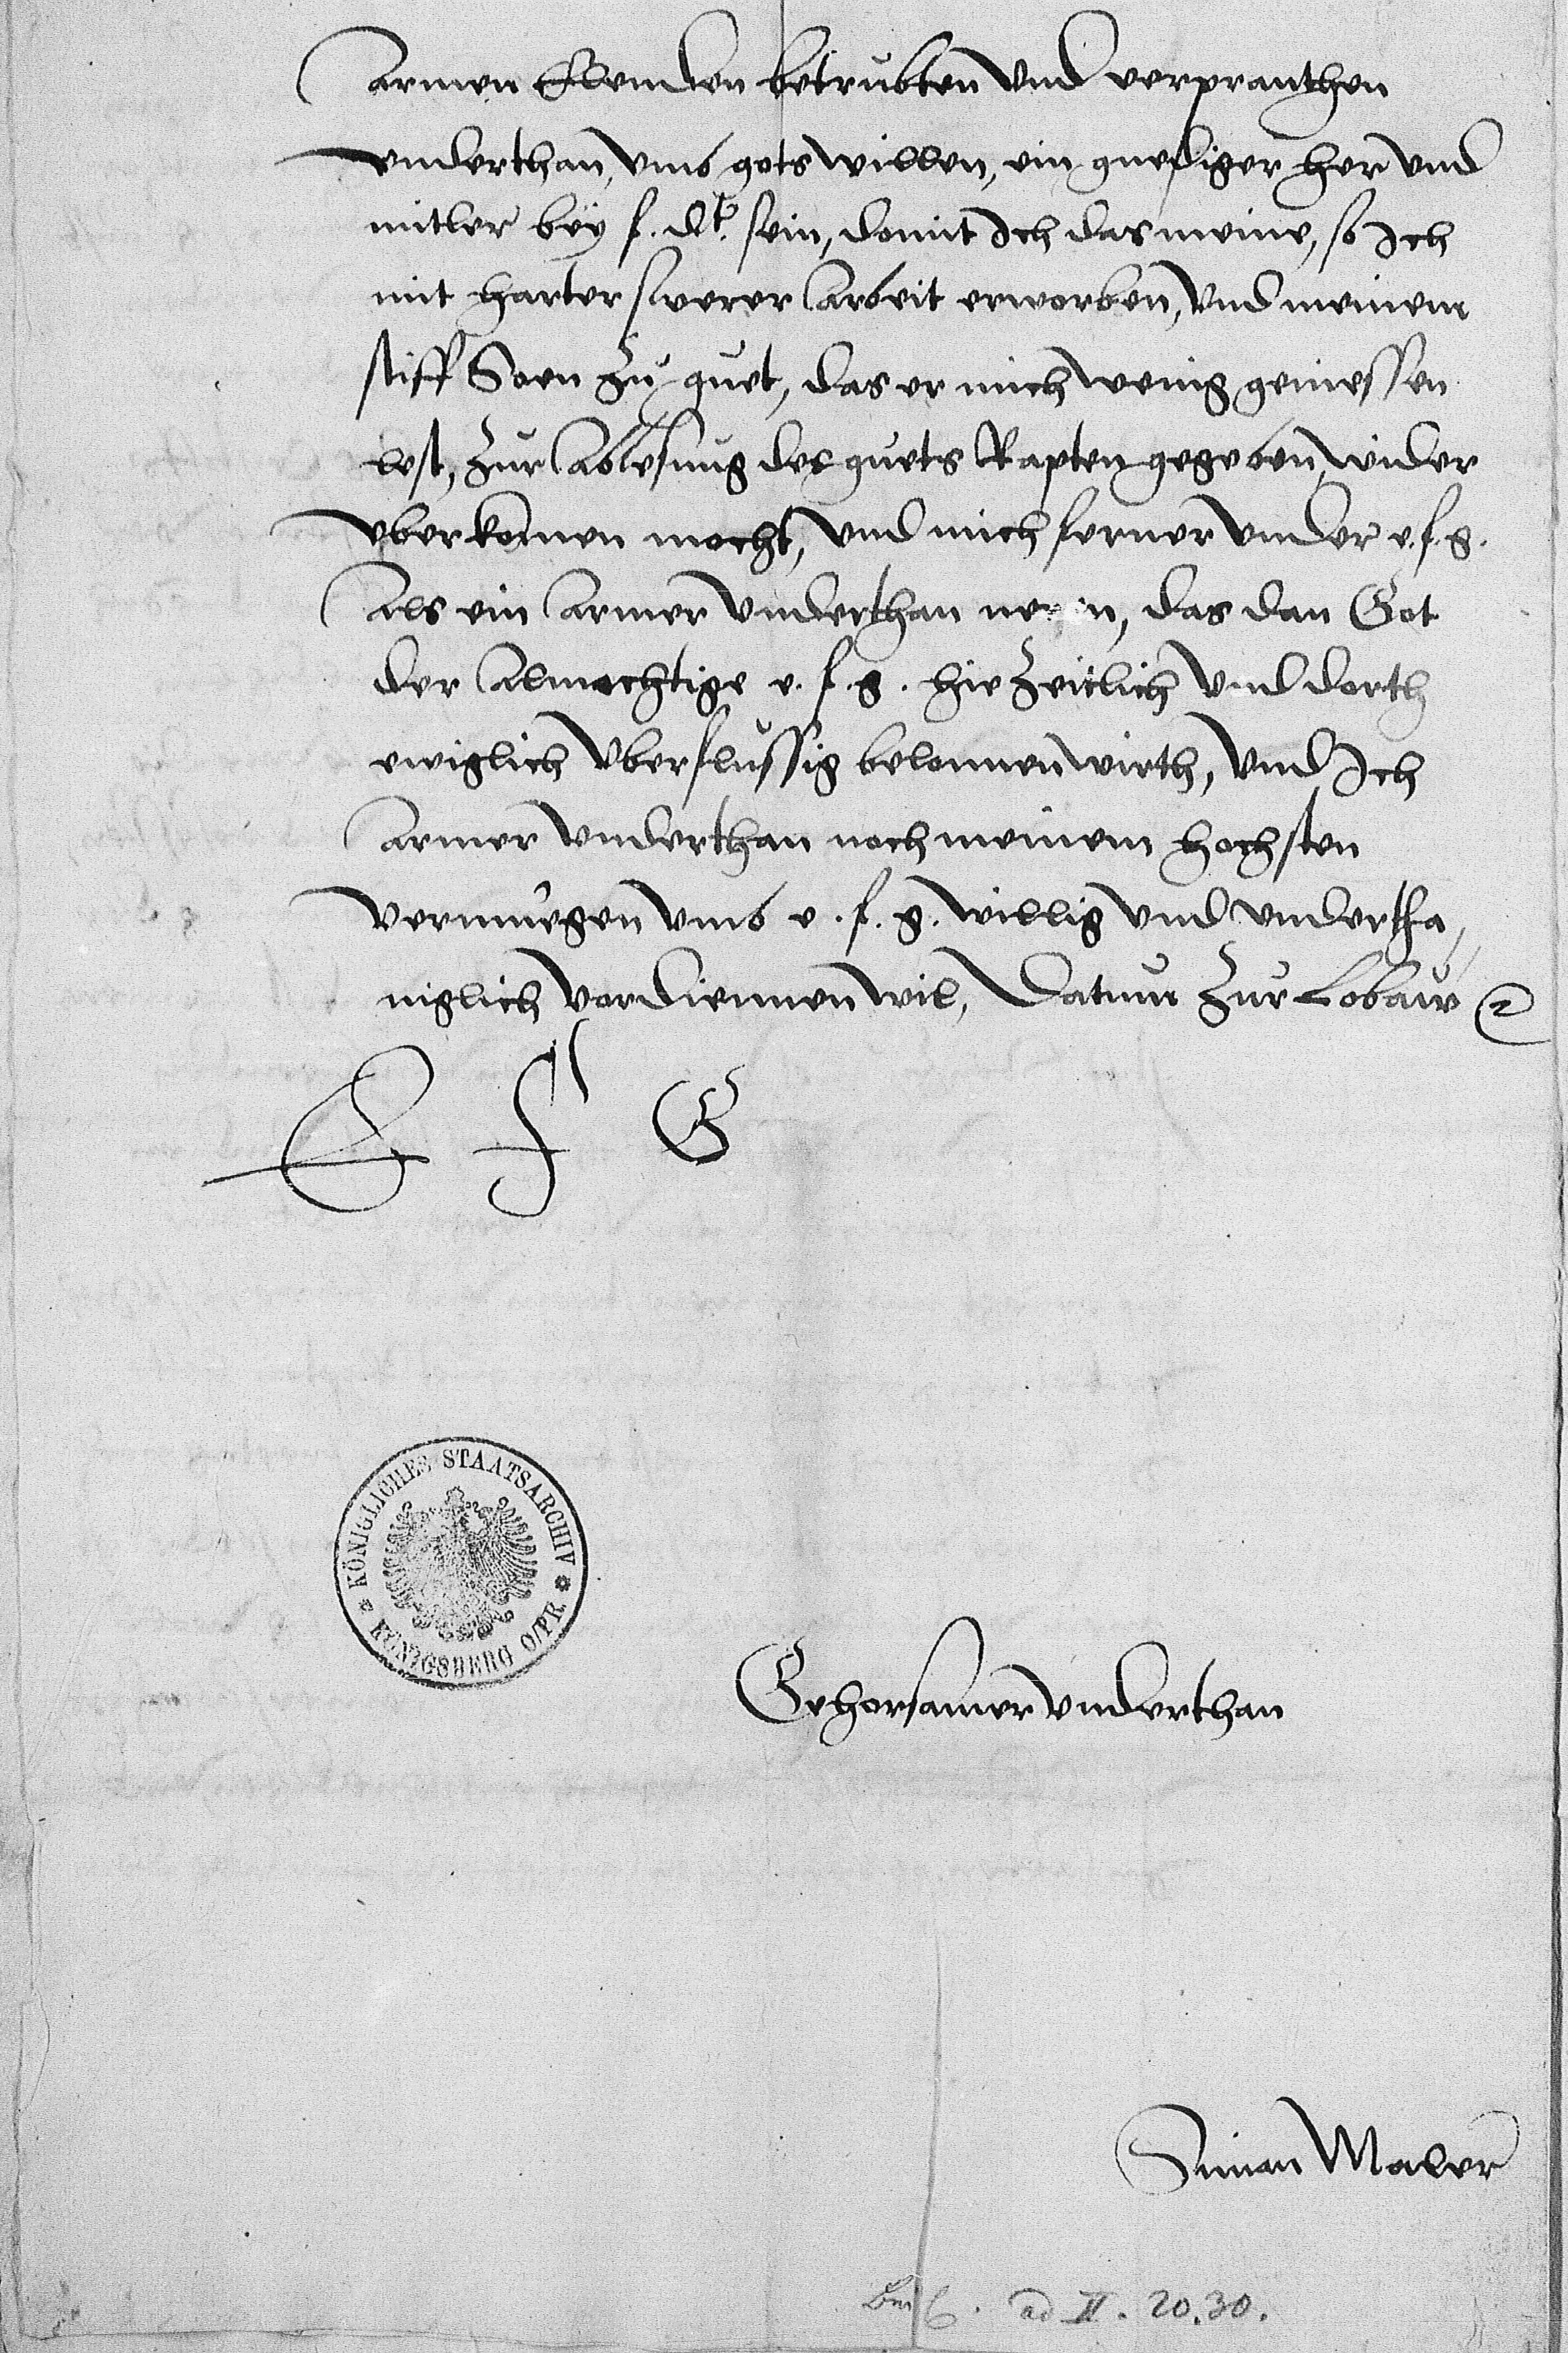 armen Elenden betrubten vnd verpranthen
vnderthan, vmb gots willen, ein gnediger her vnd
mitler bëy f. dt. sein, domit Ich das meine, so Ich
mit harter swerer Arbeit erworben, vnd meinem
stiff Soen zu guet, das er mich wenig geniessen
lest, zur Ablesung des guets Rapten gegeben, wider
vberkomen mocht, vnd mich ferner vnder e. f. g.
Als ein Armer vnderthan, das dan Got
der Almechtige e. f. g. hie zeitlich vnd dorth
ewiglich vberflussig belonnen wirth, vnd Ich
armer vnderthan noch meinem hochsten
vermuegen vmb e. f. g. willig vnd vndertha,,
niglich vordiennen wil, Datum zur Lobaw
E F G
KÖNIGLICHES STAATSARCHIV
KÖNIGSBERG O/PR.
Gehorsamer vnderthan
Simon Maler
ad II. 20. 30.